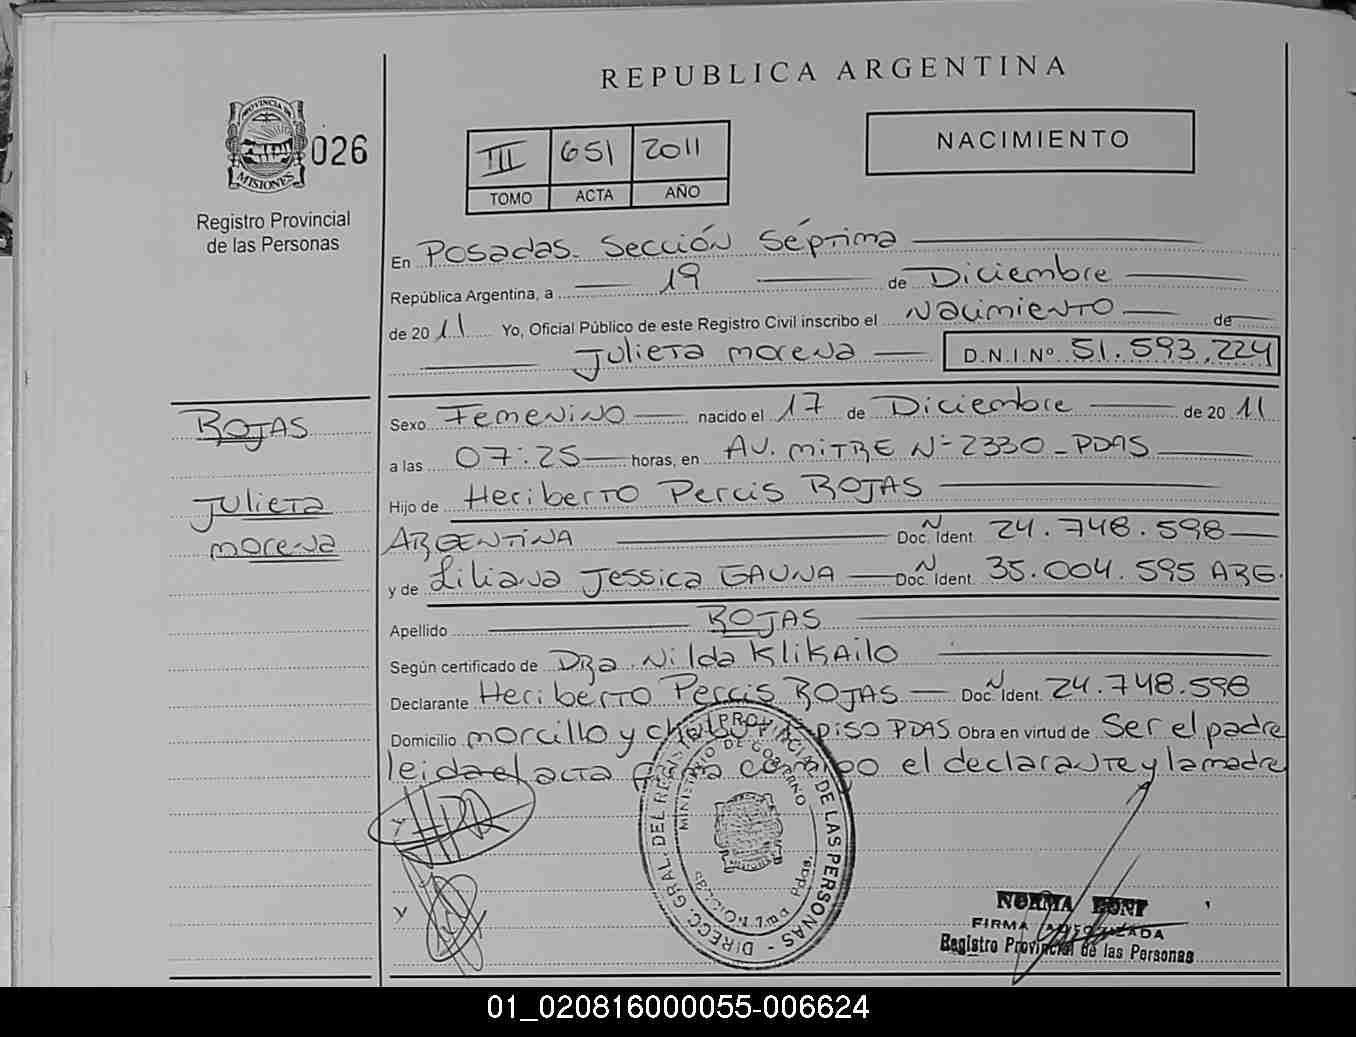 REPUBLICA ARGENTINA
PROVINCIA DE
MISIONES
026
Registro Provincial
de las Personas
III 651 2011
TOMO ACTA AÑO
NACIMIENTO
En Posadas. Sección Séptima
República Argentina, a 19 de Diciembre
de 2011 Yo, Oficial Público de este Registro Civil inscribo el Nacimiento de
Julieta morena D.N.I.Nº 51.593.224
ROJAS
Julieta
morena
Sexo Femenino nacido el 17 de Diciembre de 2011
a las 07:25 horas, en AV. MITRE Nº 2330 - PDAS
Hijo de Heriberto Percis ROJAS
ARGENTINA Doc. Ident. 24.748.598
y de Liliana Jessica GAUNA Doc. Ident. 35.004.595 ARG.
Apellido ROJAS
Según certificado de Dra. Nilda Klikailo
Declarante Heriberto Percis ROJAS Doc. Ident. 24.748.598
Domicilio morcillo y piso PDAS Obra en virtud de Ser el padre
leida el acta el declarante y la madre
DIRECC. GRAL. DEL REGIST. PROVINCIAL DE LAS PERSONAS
MINISTERIO DE GOBIERNO
NORMA
FIRMA AUTORIZADA
Registro Provincial de las Personas
01_020816000055-006624